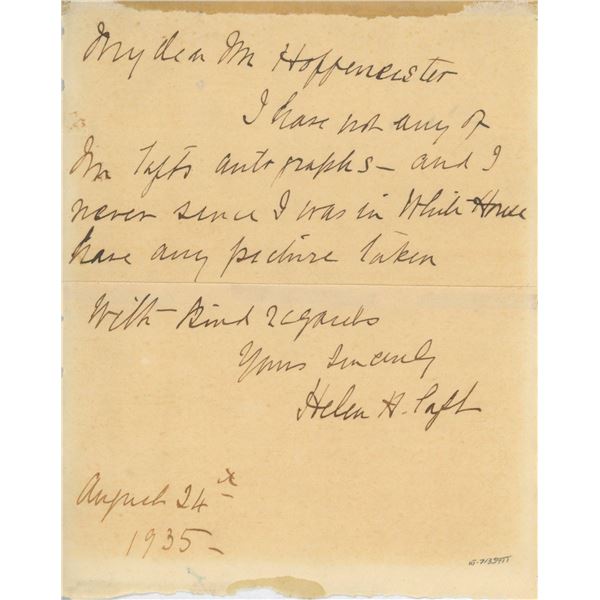 My dear Mr Hoffemeister
I have not any of
Mr Tafts autographs – and I
never since I was in White House
have any picture taken
With Kind regards
Yours Sincerely
Helen H. Taft
August 24th
1935 –